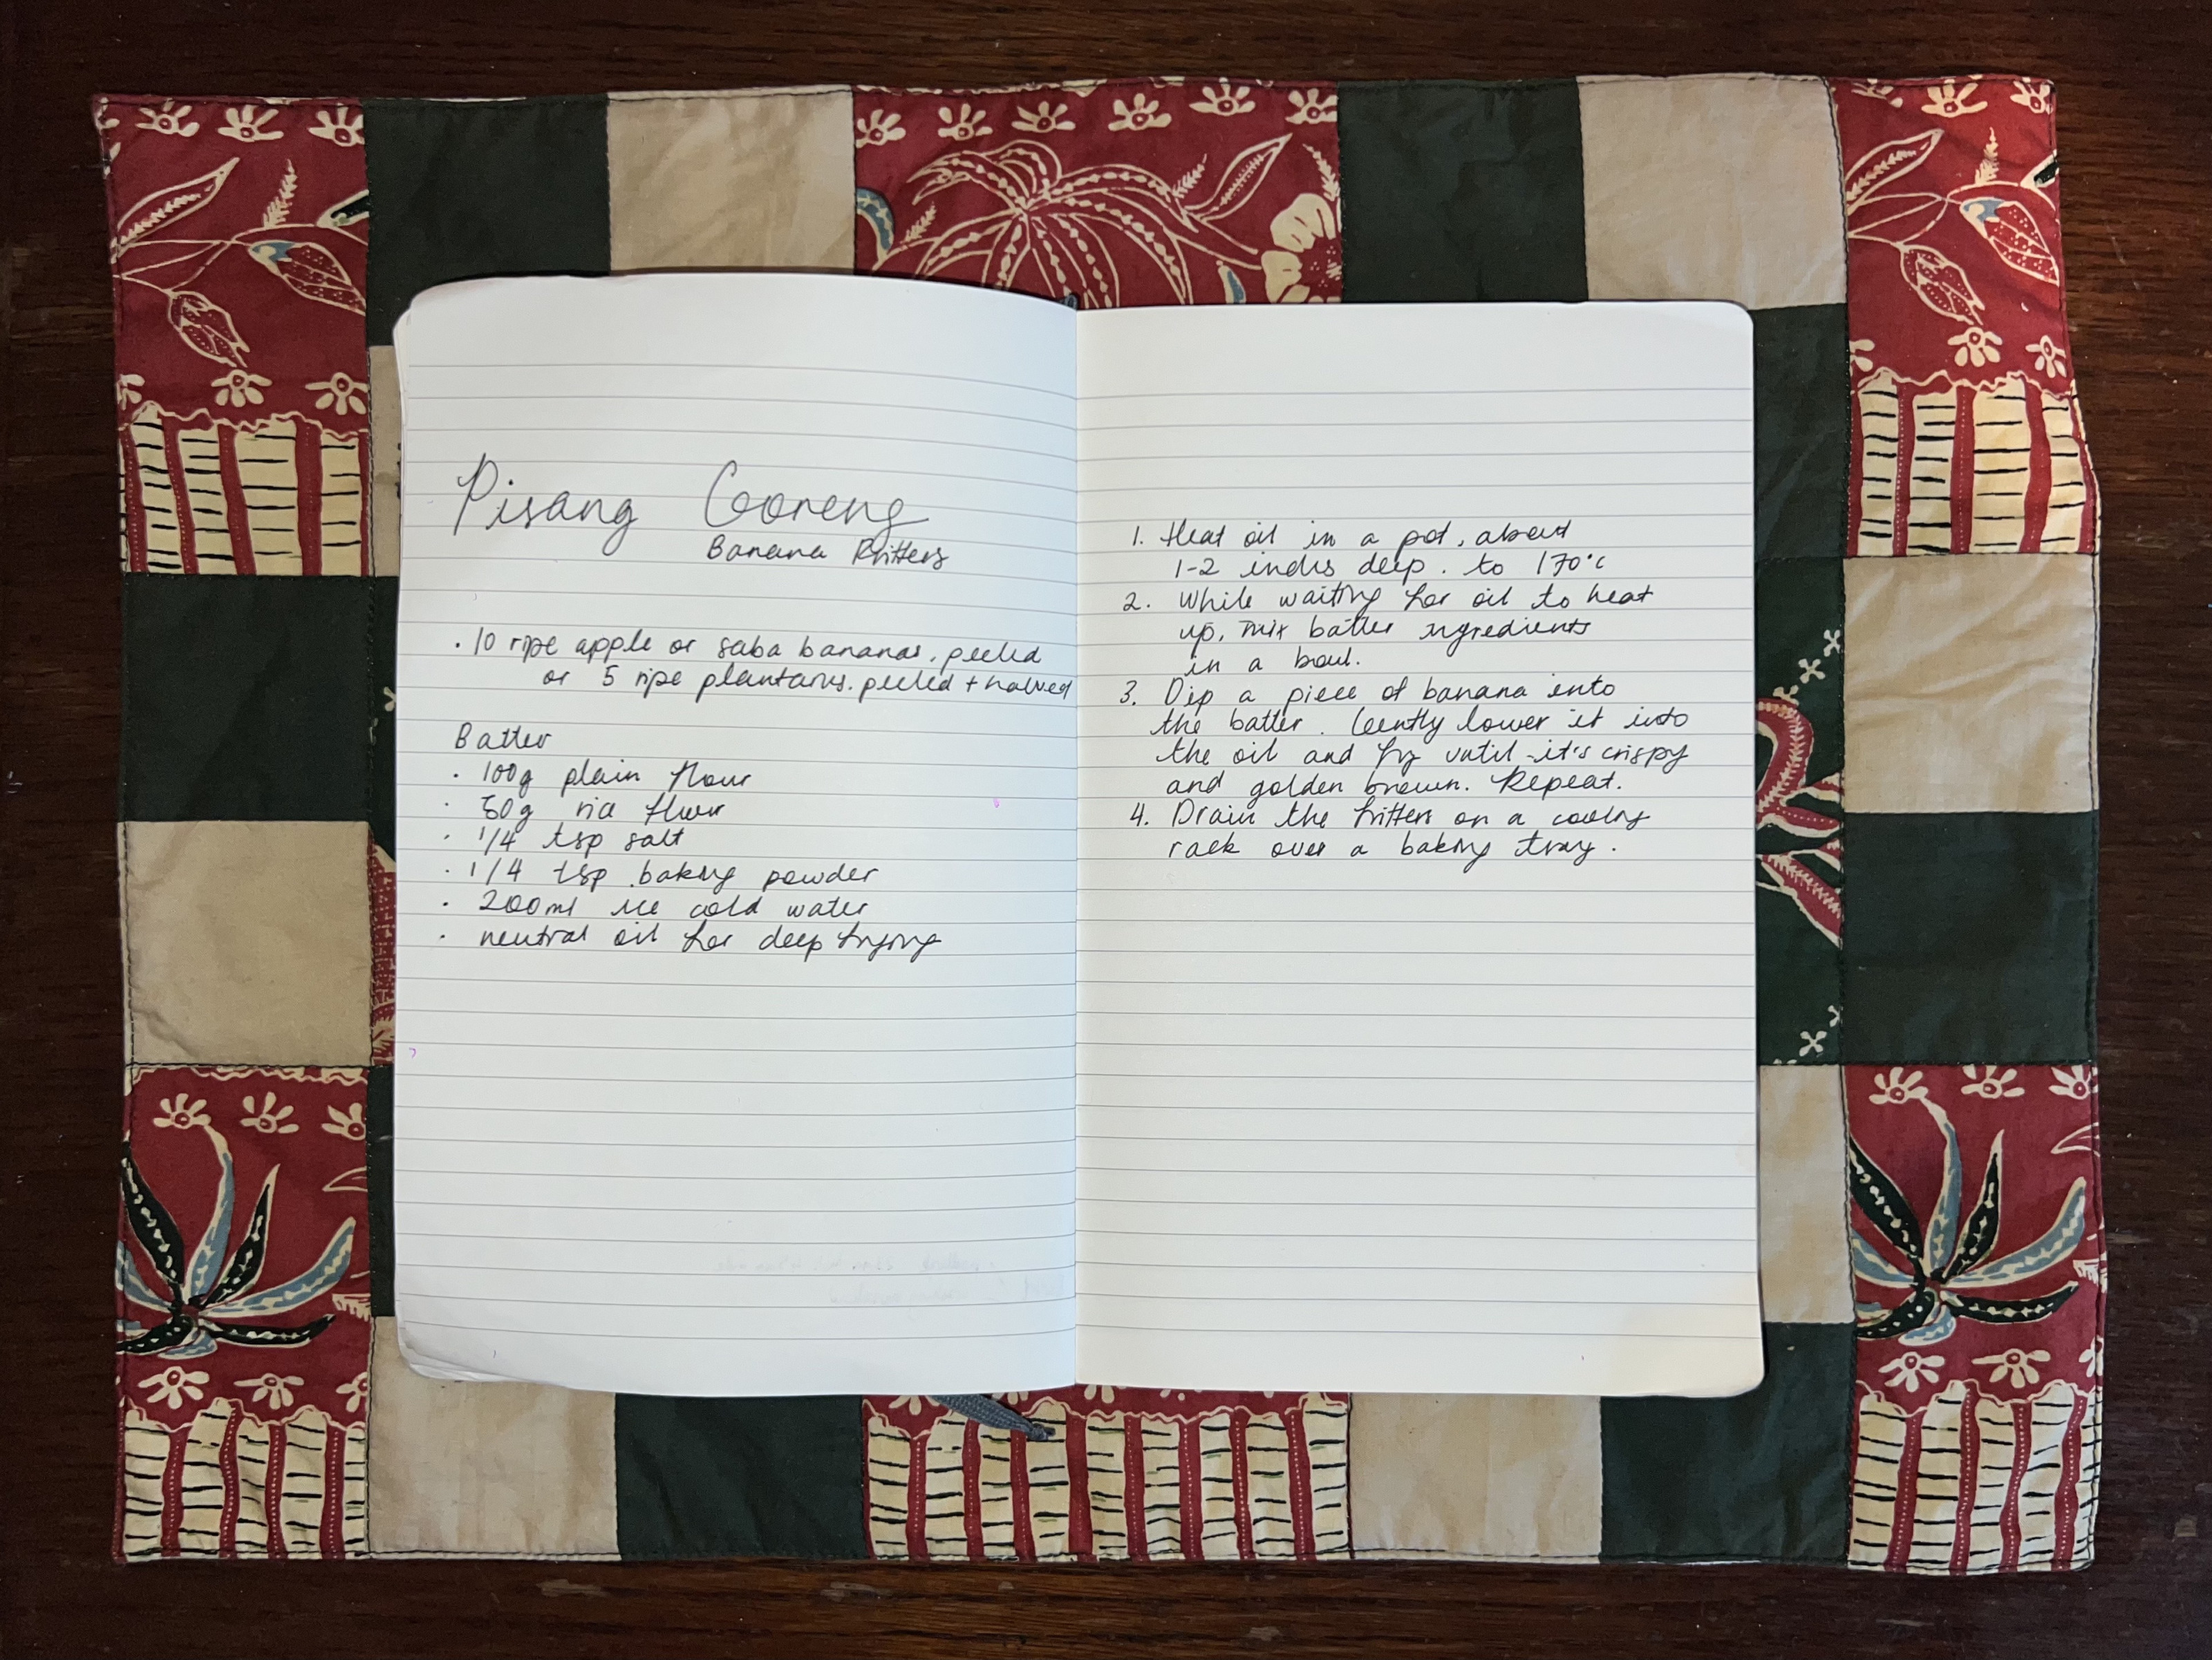 Pisang Goreng
Banana Fritters
· 10 ripe apple or saba bananas, peeled
or 5 ripe plantains, peeled + halved
Batter
· 100g plain flour
· 50g rice flour
· 1/4 tsp salt
· 1/4 tsp baking powder
· 200ml ice cold water
· neutral oil for deep frying
1. Heat oil in a pot, about
1-2 inches deep. to 170°C
2. While waiting for oil to heat
up, mix batter ingredients
in a bowl.
3. Dip a piece of banana into
the batter. Gently lower it into
the oil and fry until it's crispy
and golden brown. Repeat.
4. Drain the fritters on a cooling
rack over a baking tray.